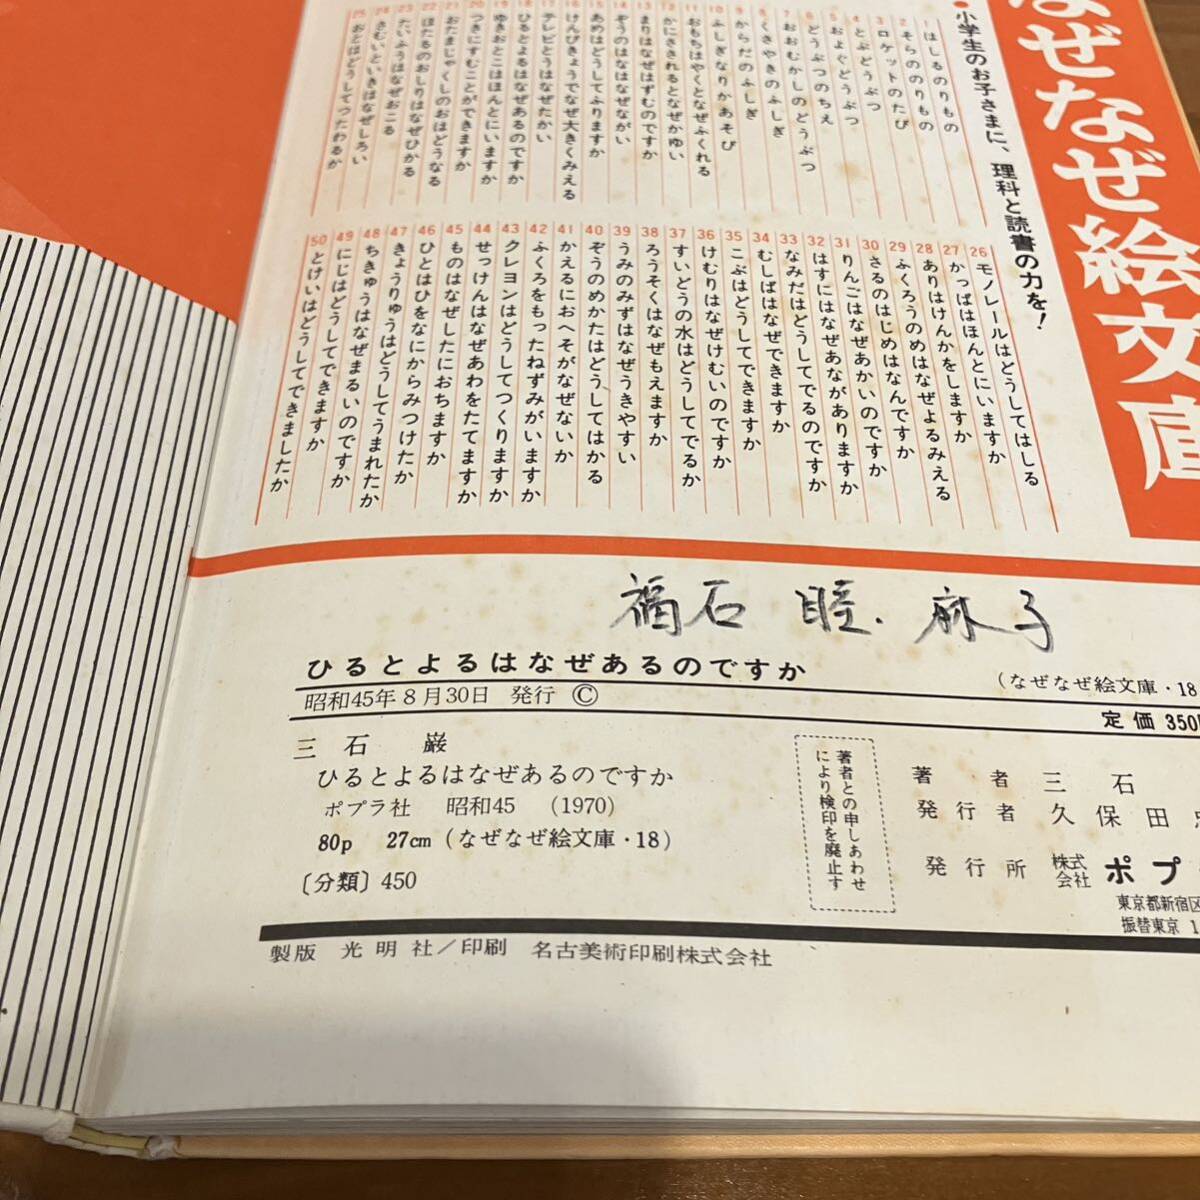 なぜなぜ絵文庫
小学生のお子さまに、理科と読書の力を！
1 はしるのりもの
2 そらののりもの
3 ロケットのたび
4 とぶどうぶつ
5 およぐどうぶつ
6 どうぶつのちえ
7 おおむかしのどうぶつ
8 くさやきのふしぎ
9 からだのふしぎ
10 ふしぎなりかあそび
11 おもちはやくとなぜふくれる
12 かにさされるとなぜかゆい
13 まりはなぜはずむのですか
14 ぞうのはなはなぜながい
15 あめはどうしてふりますか
16 けんびきょうでなぜ大きくみえる
17 テレビとうはなぜたかい
18 ひるとよるはなぜあるのですか
19 ゆきおとこはほんとにいますか
20 つきにすむことができますか
21 おたまじゃくしのおはどうなる
22 ほたるのおしりはなぜひかる
23 たいふうはなぜおこる
24 さむいといきはなぜしろい
25 おとはどうしてつたわるか
26 モノレールはどうしてはしる
27 かっぱはほんとにいますか
28 ありはけんかをしますか
29 ふくろうのめはなぜよるみえる
30 さるのはじめはなんですか
31 りんごはなぜあかいのですか
32 はすにはなぜあながありますか
33 なみだはどうしてでるのですか
34 むしばはなぜできますか
35 こぶはどうしてできますか
36 けむりはなぜけむいのですか
37 すいどうの水はどうしてでるか
38 ろうそくはなぜもえますか
39 うみのみずはなぜうきやすい
40 ぞうのめかたはどうしてはかる
41 かえるにおへそがなぜないか
42 ふくろをもったねずみがいますか
43 クレヨンはどうしてつくりますか
44 せっけんはなぜあわをたてますか
45 ものはなぜしたにおちますか
46 ひとはひをなにからみつけたか
47 きょうりゅうはどうしてうまれたか
48 ちきゅうはなぜまるいのですか
49 にじはどうしてできますか
50 とけいはどうしてできましたか
福石 睦.麻子
ひるとよるはなぜあるのですか
（なぜなぜ絵文庫・18
昭和45年8月30日 発行 ©
定価 350
三石 巌
ひるとよるはなぜあるのですか
ポプラ社 昭和45 （1970）
80p 27cm（なぜなぜ絵文庫・18）
〔分類〕450
著者との申しあわせ
により検印を廃止す
著者 三石
発行者 久保田
発行所 株式会社 ポプ
東京都新宿区
振替東京 1
製版 光明社／印刷 名古美術印刷株式会社